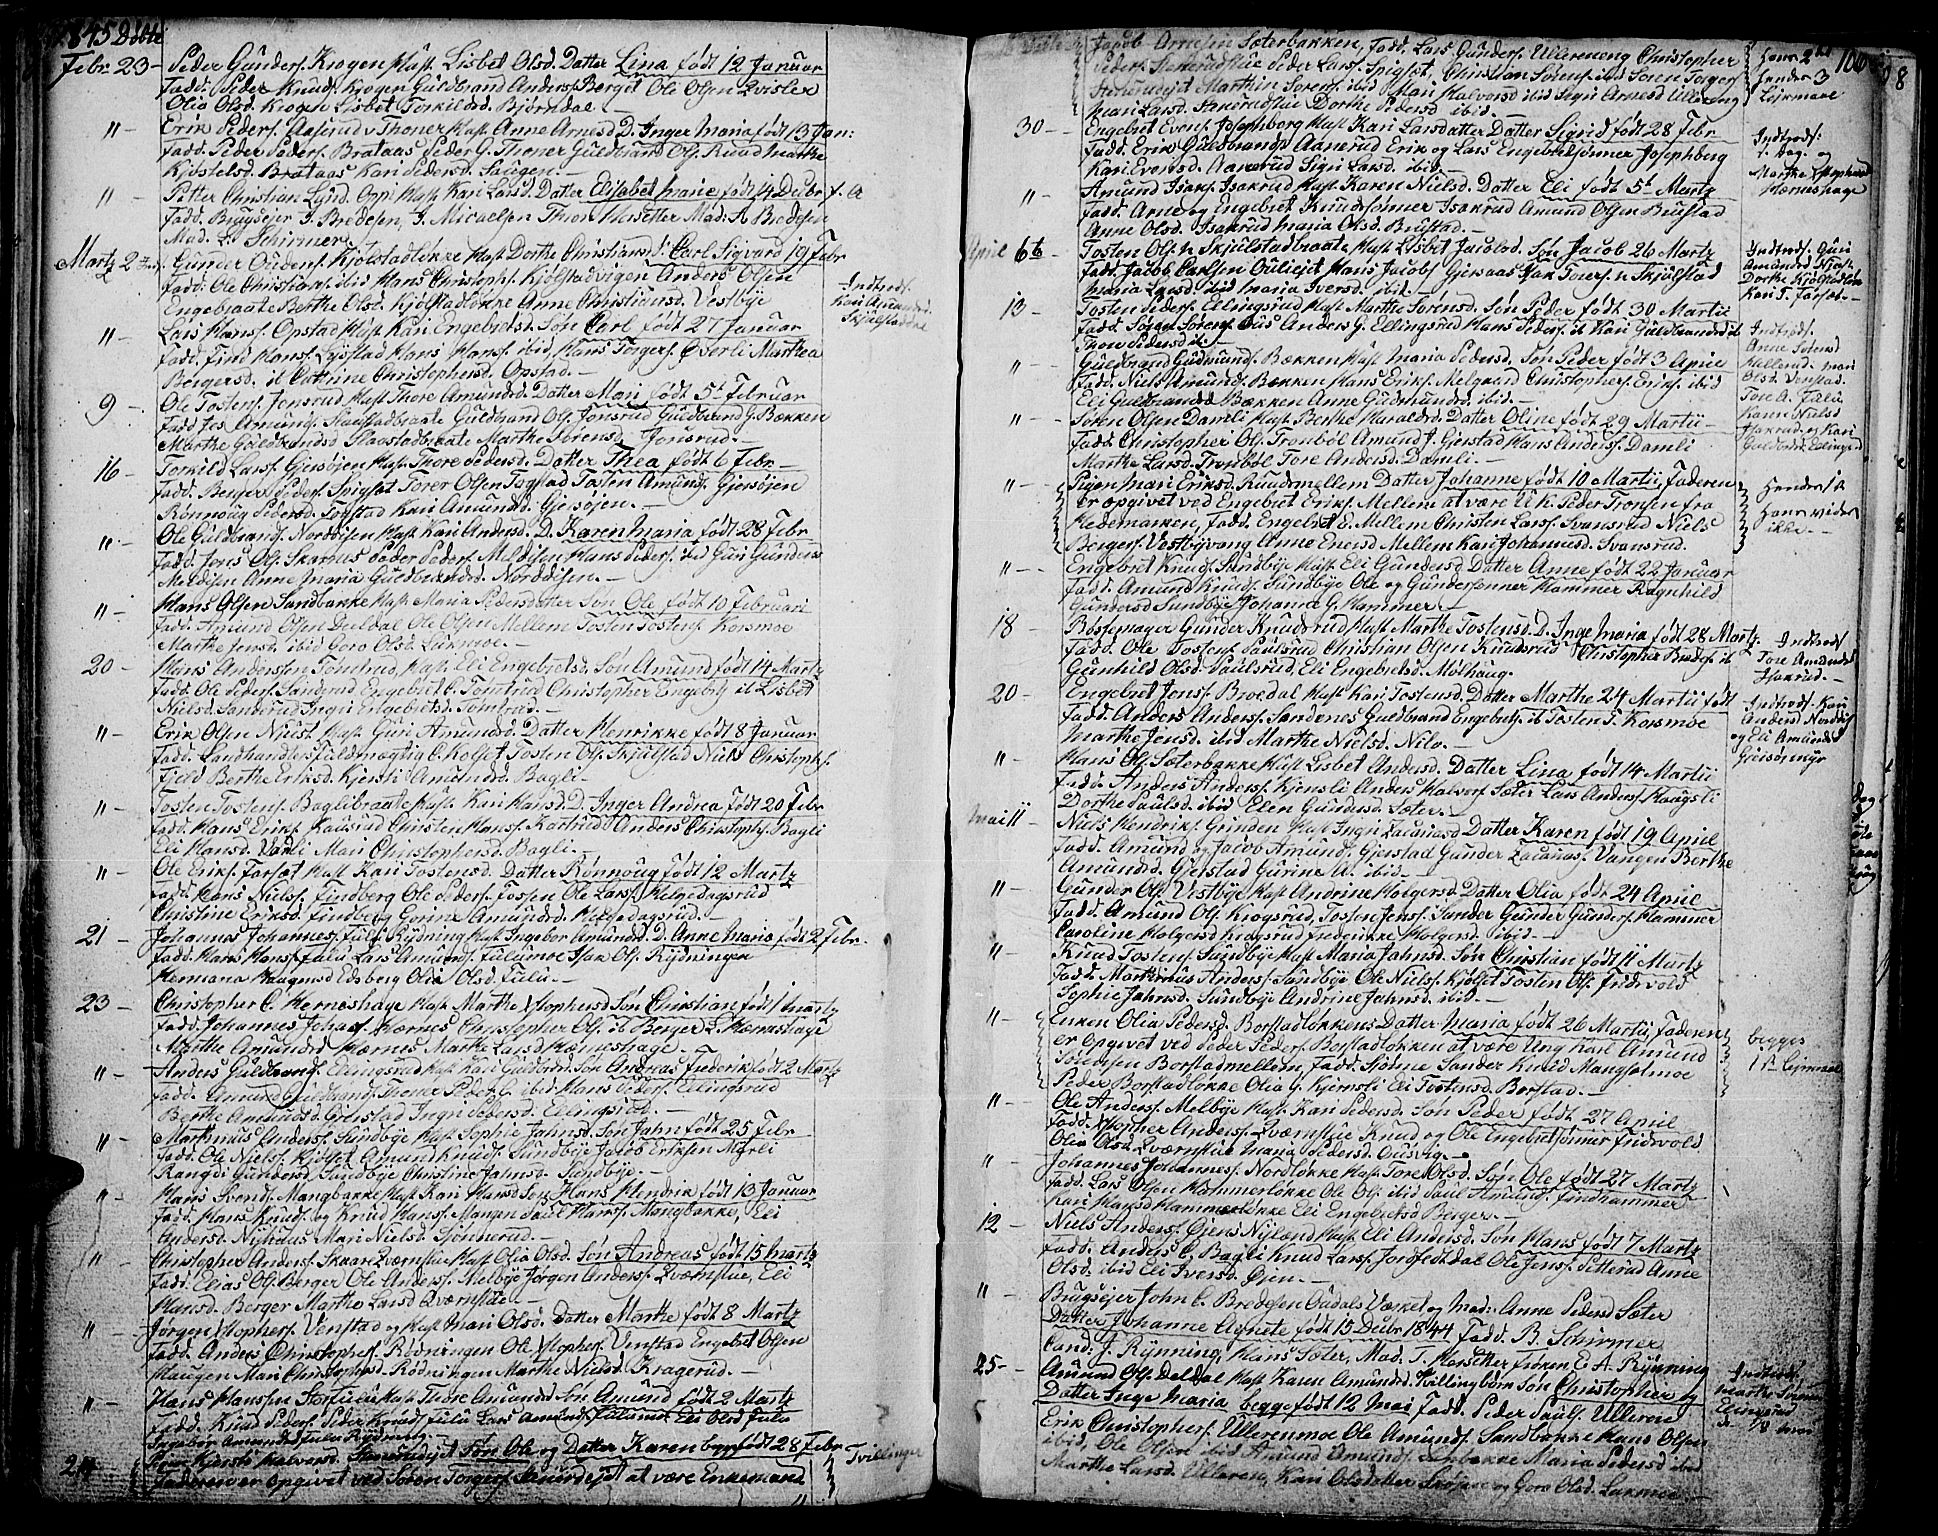 1845 Døbte
Febr. 23 - Peder Gunders. Krogen Hust. Lisbet Olsd. Datter Lina født 12 Januar
Fadd. Peder Knuds. Krogen Guldbrand Anders. Berget Ole Olsen Qvisler
Olia Olsd. Krogen Lisbet Torkildsd. Bjørndal.
" Erik Peders. Aaserud v Thoner Hust. Anne Arnesd D. Inger Maria født 13 Jan:
Fadd. Peder Peders. Brataas Peder G. Thoner Guldbrand Ols. Ruud Marthe
Kjøstelsd. Brataas Kari Pedersd. Haugen.
" Petter Christian Lund. Opp. Hust. Kari Larsd. Datter Elisabet Marie født 14 Decbr f. A
Fadd. Brugsejer J. Bredesen, J. Micaelsen Thor Hesetter Mad. A Bredesen
Mad. L. Schirmer
Martz 2 Gunder Gudens. Kjølstadløkke Hust. Dorthe Christiansd. Carl Sigvard 19 Febr
Fadd. Ole Christians. ibid Hans Christophs. Kjølstadvigen Anders Olsen
Engebraate Berthe Olsd. Kjølstadløkke Anne Christiansd. Vestbye
Indtrods.
Kari Amundsd.
Skjulstadene
" Lars Hans. Opstad Hust. Kari Engebretsd. Søn Carl født 27 Januar
Fadd. Find Hans. Lystad Hans Hans. ibid, Hans Torgers. Overli Marthea
Bergersd. ib Cathrine Christophersd. Opstad.-
9 - Ole Tostens. Jonsrud Hust. Thore Amundsd. Datter Mari født 5t Februar
Fadd Jos Amunds. Slaastadbraate Guldbrand Ols. Jonsrud Guldbrand G. Bækken
Marthe Guldbrandsd Slaastadbraate Marthe Sørensd. Jonsrud.-
16 - Torkild Lars. Gjersøjen Hust. Thore Pedersd. Datter Thea født 6 Febr -
Fadd. Berger Peders. Spigset Torer Olsen Togstad Tosten Amunds. Gjersøjen
Rønnoug Pedersd. Togstad Kari Amundsd. Gjersøjen.-
" Ole Guldbrands. Norddisen Hust. Kari Andersd. D. Karen Maria født 28 Febr
Fadd. Jens Ols. Skarnes Peder Peders. Meldisen Hans Peders. ibid Guri Gundersd
Meldisen Anne Maria Guldbrandsd. Norddisen.-
" Hans Olsen Sandbakke Hust. Maria Pedersdatter Søn Ole født 10 Februari
Fadd. Amund Olsen Deildal Ole Olsen Mellem Tosten Tostens. Korsmoe
Marthe Jensd. ibid Goro Olsd. Lurmoe.-
20 - Hans Andersen Tomtrud Hust. Eli Engebretsd. Søn Amund født 14 Martz
Fadd. Ole Peders. Sanderud Engebret C. Tomtrud Christopher Engebrts ib Lisbet
Nielsd. Sanderud Ingri Engebretsd. Tomtrud.-
" Erik Olsen Nust Hust. Guri Amundsd. Datter Henrikke født 8 Januar
Fadd. Landhandlerfuldmægtig C. Kolset Tosten Ols. Skjulstad Niels Christophs.
Fjeld Berthe Eriksd. Kjersti Amundsd. Bagli.-
" Tosten Tostens. Baglibraate Hust. Kari Hansd. D. Inger Andrea født 20 Febr
Fadd. Hans Eriks. Kausrud Christen Hans. Kastrud Anders Christophs. Bagli
Eli Hansd. Vardli Mari Christophersd. Bagli.-
" Ole Eriks. Farset Hust. Kari Tostensd. Datter Rønnoug født 12 Martz
Fadd. Hans Niels. Findberg Ole Peders. Fossen Ole Lars. Helgedagsrud
Christine Eriksd. Findberg Gorine Amundsd. Helgedagsrud.-
21 - Johannes Johannes. Fulu Rydning Hust. Ingebor Amundsd. D. Anne Maria født 2 Febr.
Fadd. Hans Hans. Fulu Lars Amunds. Fulumoe Isak Ols. Rydningen
Hermana Haagensd Edsberg Olia Olsd. Fulu.-
23 - Christopher C. Herneshage Hust. Marthe Xstophersd Søn Christian født 1 Martz
Fadd. Johannes Johas. Hærnes Christopher Ols. ib Berger L. Hærneshage
Marthe Amundsd. Hærnes Marthe Larsd Hærneshage.-
" Anders Guldbrands. Elingsrud Hust. Kari Guldbrdsd. Søn Andreas Frederik født 2 Martz
Fadd. Amund Guldbrands. Thoner Peder G. ibid Hans Peders. Ellingsrud
Berthe Amundsd. Gjerstad Ingri Pedersd. Ellingsrud.-
" Mathinus Anders. Sundbye Hust. Sophie Jahnsd. Søn Jahn født 25 Febr
Fadd. Ole Niels. Kjølset Amund Knuds. Sundbye Jacob Eriksen Marli
Rangdi Gundersd. Sundbye Christine Jahnsd. Sundbye.-
" Hans Svends. Mangbakke Hust. Kari Hansd Søn Hans Hendrik født 13 Januar
Fadd. Hans Knuds. og Knud Hans. Mangen Paul Hans. Mangbakke, Eli
Andersd. Nyhuus Mari Nielsd. Sjønnerud.-
" Christopher Anders. Skaar Qværnstue Hust. Olia Olsd. Søn Andreas født 15 Martz
Fadd. Elias Ols. Berger Ole Anders. Melbye Jørgen Anders. Qværnstue, Eli
Hansd. Berger Marthe Larsd Qværnstue.-
" Jørgen Xstophers. Venstad og Hust. Mari Olsd. Datter Marthe født 8 Martz
Fadd. Anders Christophs. Rødningen Ole Xstophers. Venstad Engebret Olsen
Haugen Mari Christophersd. Rødningen Marthe Nielsd. Kragerud.-
" Hans Hansen Storfulu Hust. Thore Amundsd Søn Amund født 2 Martz
Fadd. Knud Peders. Peder Knuds. Fulu Lars Amunds. Fulumoe Eli Olsd Fulu
Ingebor Amundsd Fulu Rydning.-
24 Pigen Kjersti Halvorsd. Stenerudejet Søn Ole og Datter Karen begge født 28 Febr. Tvillinger
Faderen er opgivet ved Søren Torgers. Stenerudejet at være Enkemand
106
Jacob Arnesen Sæterbakken, Fadd. Lars Gunders. Ullereneng Christopher
Peders. Stenerudstue Peder Lars. Spigset, Christian Sørens. ibid Søren Torgers
Stenerudejet Marthin Sørens. ibid Mari Halvorsd ibid Sigri Arnesd Ullereng
Mari Larsd. Stenerudstue Dorthe Pedersd ibid.
Hans 2det
Hendes 3
Lejermaal
30 - Engebret Evens. Josephberg Hust. Kari Larsdatter Datter Sigrid født 28 Febr
Fadd. Erik Guldbrands. Aanerud Erik og Lars Engebretsønner Josephberg
Kari Evensd. Aanerud Sigri Larsd. ibid.
Indtrods.
i Dag. og
Marthe Xstophersd
Hærneshage
" Amund Isaks. Isakrud Hust. Karen Nielsd. Datter Eli født 5t Martz
Fadd. Arne og Engebret Knudsønner Isakrud Amund Olsen Brustad
Anne Olsd. Isakrud Maria Olsd. Brustad.-
April 6te Tosten Ols. n. Skjulstadbraate Hust. Lisbet Jacobsd. Søn Jacob 26 Martz
Fadd. Jacob Carlsen Ouliejet Hans Jacobs. Gjersaas Isak Torers. n. Skjulstad
Maria Larsd ibid Maria Iversd. ibid -
Indtrods. Guri
Amundsd Njust
Dorthe Kjølstadløk
Kari T. Farset.-
13 - Tosten Peders. Ellingsrud Hust. Marthe Sørensd. Søn Peder født 30 Martii
Fadd. Torger Sørens. Ous Anders G. Ellingsrud Hans Peders. ib Kari Guldbrandsd ib
Thore Pedersd ib.-
Indtrods.
Anne Larsd
Hallerud. Mari
Olsd. Venstad.
Tore A. Fulu
Karen Nielsd
Isakrud og Kari
Guldbrdsd. Elingsrd
" Guldbrand Gudmunds. Bækken Hust. Maria Pedersd. Søn Peder født 3 April
Fadd. Niels Amunds. Bækken Hans Eriks. Melgaard Christophers. Eriks. ibid
Eli Guldbrandsd Bækken Anne Gudmundsd. ibid.-
" Søren Olsen Damli Hust. Berthe Haraldsd. Datter Oline født 29 Martii -
Fadd. Christopher Ols. Tronbøl Amund J. Gjerstad Hans Anders. Damli
Marthe Larsd. Tronbøl Tore Andersd. Damli.-
" Pigen Mari Eriksd. Ruudsmellem Datter Johanne født 10 Martii, Faderen
er opgivet ved Engebret Eriks. Mellem at være U.K. Peder Trongen fra
Hedemarken, Fadd. Engebret E. Mellem Christen Lars. Svansrud Niels
Bergers. Vestbyvang Anne Enersd Mellem Kari Johannesd. Svansrud.
Hendes 1t
Hans vides
ikke.-
" Engebret Knuds. Sundbye Hust. Eli Gundersd Datter Anne født 22 Januar
Fadd. Amund Knuds. Sundbye Ole og Gundersønner Hammer Ragnhild
Gundersd Sundbye Johanne G. Hammer.-
18 - Røstemager Gunder Knudsrud Hust. Marthe Tostensd. D. Inge Maria født 28 Martz
Fadd. Ole Tostens. Paulsrud Christian Olsen Knudsrud Christopher Brede. ib
Gunhild Olsd. Paulsrud, Eli Engebretsd. Molhaug.
Indtrods
Tore Amundsd
Isakrud.-
20 - Engebret Jens. Brodal Hust. Kari Tostensd. Datter Marthe 24 Martii født
Fadd. Anders Anders. Sandenes Guldbrand Engebrts. ib Tosten T. Korsmoe
Marthe Jensd. ibid Marthe Nielsd. Nilo.-
Indtrods. Kari
Andersd Norddis
og Eli Amundsd
Gjersømyr
" Hans Ols. Sæterbakke Hust. Lisbet Andersd. Datter Lina født 14 Martii
Fadd. Anders Anders. Kjensli Anders Halvors. Sæter Lars Anders. Haugsli
Dorthe Paulsd. ibid Elen Gundersd. Sæter.-
Mai 11 - Niels Hendriks. Grinden Hust. Ingri Zacariasd Datter Karen født 19 April
Fadd. Amund og Jacob Amunds. Gjerstad Gunder Zacarias. Vangen Berthe
Amundsd. Gjerstad Gurine A. ibid.-
" Gunder Ols. Vestbye Hust. Andrine Holgersd. Datter Olia født 24 April
Fadd. Amund Ols. Krogsrud, Tosten Jens. Sander Gunder Gunders. Hammer
Caroline Holgersd Krogsrud Frederikke Holgersd. ibid.-
" Knud Tostens. Sundbye Hust. Maria Jahnsd. Søn Christian født 11 Martz
Fadd. Marthinus Anders. Sundbye Ole Niels. Kjølset Tosten Ols. Fridvold
Sophie Jahnsd. Sundbye Andrine Jahnsd. ibid.-
" Enken Olia Pedersd. Borstadløkkens Datter Maria født 26 Martii, Faderen
er Opgivet ved Peder Peders. Borstadløkken at være Ung Karl Amund
Torersen Borstadmellem, Fadd. Sjønne Sander Knud Mangselmoe
Peder Borstadløkke Olia G. Kjernsli Eli Tostensd. Borstad.-
begges
1ste Lejermaal
" Ole Anders. Melbye Hust. Kari Pedersd. Søn Peder født 27 April
Fadd. Xstopher Anders. Qværnstue Knud og Ole Engebretsønner Fridvold
Olia Olsd. Qværnstue Maria Pedersd. Ousvig.-
" Johannes Johannes. Nordløkke Hust. Tore Olsd. Søn Ole født 27 Martz
Fadd. Lars Olsen Hammerløkke Ole Ols. ibid Paul Amunds. Findhammer
Kari Hansd Hammerløkke Eli Engebretsd Berger.-
12 - Niels Anders. Øjens Nyland Hust. Eli Andersd. Søn Hans født 7 Martz
Fadd. Anders C. Bagli Knud Lars. Jordfeldtdal Ole Jens. Sætterud Anne
Olsd. ibid Eli Iversd. Øjen.-
" Brugsejer John C. Bredesen Oudals Værket og Mad: Anne Pedersd Sæter
Datter Johanne Agnete født 15 Decbr 1844 Fadd. B. Schirmer
Cand. J. Rynning, Hans Sæter, Mad. T. Horsetter Frøken E. A. Rynning
25 - Amund Ols. Deldal Hust. Karen Amundsd. Tvillingbørn Søn Christopher og
Datter Inge Maria begge født 12 Mai Fadd. Peder Pauls. Ulleren
Erik Christophers. Ullerenmoe Ole Amunds. Sandbakke Hans Olsen
ibid, Ole Olsen ibid Amund Amunds. Sandbakke Maria Pedersd ibid
Marthe Larsd. Ulleren, Kari Olsdatter og Goro Olsd. Lurmoe.-
Indtrods.
Marthe Sørensd
Elingsrud